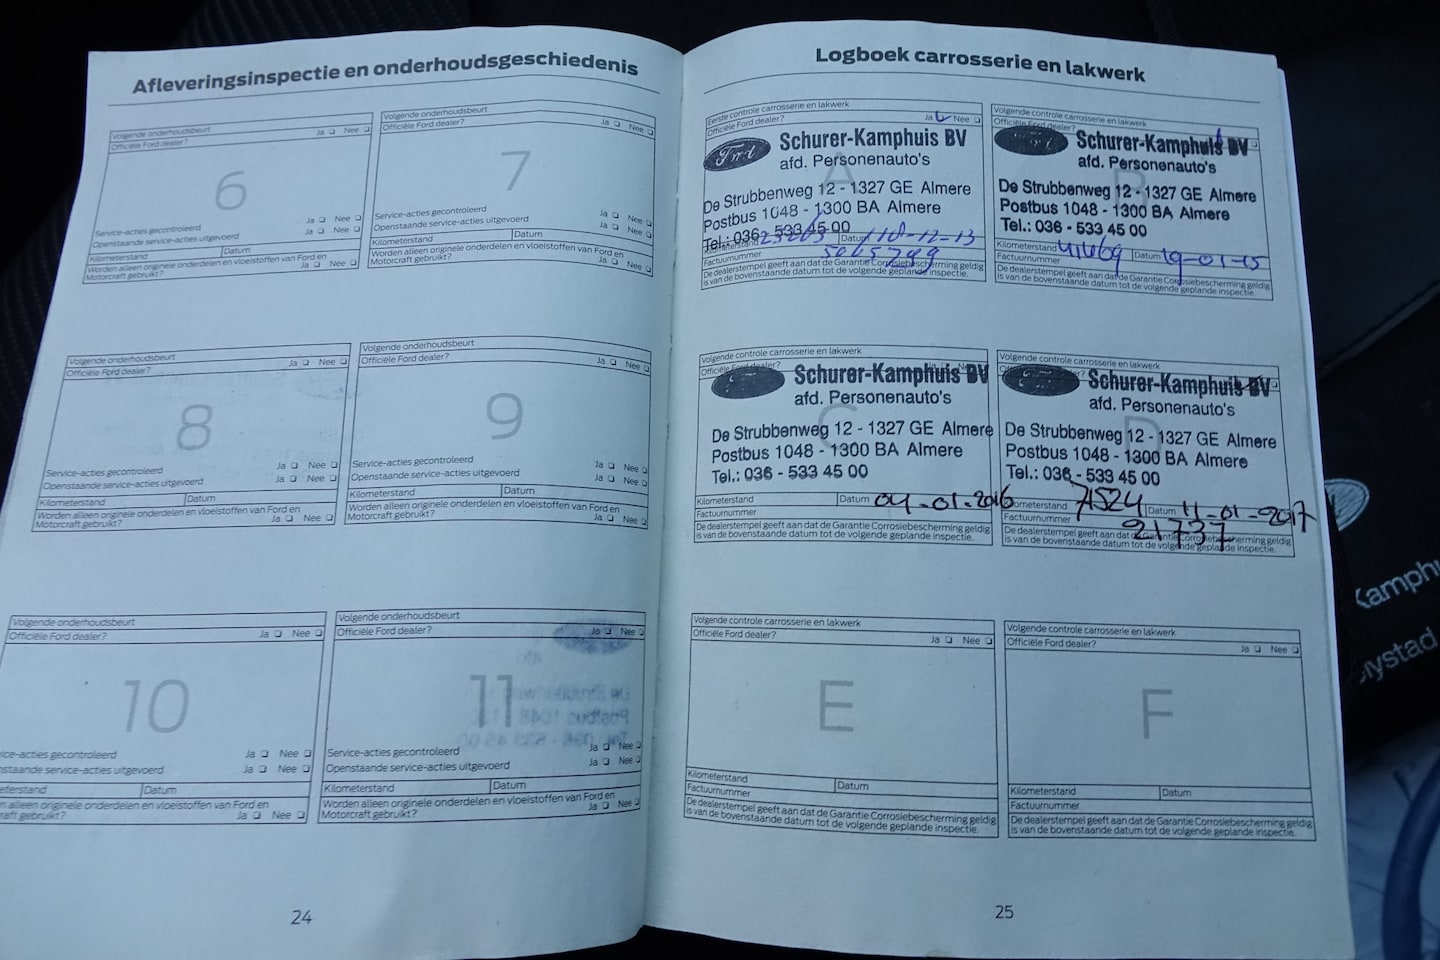 Afleveringsinspectie en onderhoudsgeschiedenis
Volgende onderhoudsbeurt
Officiële Ford dealer? Ja Nee
6
Service-acties gecontroleerd Ja Nee
Openstaande service-acties uitgevoerd Ja Nee
Kilometerstand Datum
Worden alleen originele onderdelen en vloeistoffen van Ford en
Motorcraft gebruikt? Ja Nee
Volgende onderhoudsbeurt
Officiële Ford dealer? Ja Nee
7
Service-acties gecontroleerd Ja Nee
Openstaande service-acties uitgevoerd Ja Nee
Kilometerstand Datum
Worden alleen originele onderdelen en vloeistoffen van Ford en
Motorcraft gebruikt? Ja Nee
Volgende onderhoudsbeurt
Officiële Ford dealer? Ja Nee
8
Service-acties gecontroleerd Ja Nee
Openstaande service-acties uitgevoerd Ja Nee
Kilometerstand Datum
Worden alleen originele onderdelen en vloeistoffen van Ford en
Motorcraft gebruikt? Ja Nee
Volgende onderhoudsbeurt
Officiële Ford dealer? Ja Nee
9
Service-acties gecontroleerd Ja Nee
Openstaande service-acties uitgevoerd Ja Nee
Kilometerstand Datum
Worden alleen originele onderdelen en vloeistoffen van Ford en
Motorcraft gebruikt? Ja Nee
Volgende onderhoudsbeurt
Officiële Ford dealer? Ja Nee
10
ice-acties gecontroleerd Ja Nee
nstaande service-acties uitgevoerd Ja Nee
eterstand Datum
n alleen originele onderdelen en vloeistoffen van Ford en
raft gebruikt? Ja Nee
Volgende onderhoudsbeurt
Officiële Ford dealer? Ja Nee
11
Service-acties gecontroleerd Ja Nee
Openstaande service-acties uitgevoerd Ja Nee
Kilometerstand Datum
Worden alleen originele onderdelen en vloeistoffen van Ford en
Motorcraft gebruikt? Ja Nee
24
Logboek carrosserie en lakwerk
Eerste controle carrosserie en lakwerk
Officiële Ford dealer? Ja Nee
A
Ford Schurer-Kamphuis BV
afd. Personenauto's
De Strubbenweg 12 - 1327 GE Almere
Postbus 1048 - 1300 BA Almere
Tel.: 036 - 533 45 00
Datum 18-12-13
Factuurnummer
De dealerstempel geeft aan dat de Garantie Corrosiebescherming geldig
is van bovenstaande datum tot de volgende geplande inspectie.
Volgende controle carrosserie en lakwerk
Officiële Ford dealer?
B
Schurer-Kamphuis BV
afd. Personenauto's
De Strubbenweg 12 - 1327 GE Almere
Postbus 1048 - 1300 BA Almere
Tel.: 036 - 533 45 00
Kilometerstand 41469 Datum 19-01-15
Factuurnummer
De dealerstempel geeft aan dat de Garantie Corrosiebescherming geldig
is van bovenstaande datum tot de volgende geplande inspectie.
Volgende controle carrosserie en lakwerk
Officiële Ford dealer?
C
Schurer-Kamphuis BV
afd. Personenauto's
De Strubbenweg 12 - 1327 GE Almere
Postbus 1048 - 1300 BA Almere
Tel.: 036 - 533 45 00
Kilometerstand Datum 04-01-2016
Factuurnummer
De dealerstempel geeft aan dat de Garantie Corrosiebescherming geldig
is van bovenstaande datum tot de volgende geplande inspectie.
Volgende controle carrosserie en lakwerk
D
Schurer-Kamphuis BV
afd. Personenauto's
De Strubbenweg 12 - 1327 GE Almere
Postbus 1048 - 1300 BA Almere
Tel.: 036 - 533 45 00
Kilometerstand 71524 Datum 11-01-2017
Factuurnummer 21737
De dealerstempel geeft aan dat de Garantie Corrosiebescherming geldig
is van bovenstaande datum tot de volgende geplande inspectie.
Volgende controle carrosserie en lakwerk
Officiële Ford dealer? Ja Nee
E
Kilometerstand Datum
Factuurnummer
De dealerstempel geeft aan dat de Garantie Corrosiebescherming geldig
is van bovenstaande datum tot de volgende geplande inspectie.
Volgende controle carrosserie en lakwerk
Officiële Ford dealer? Ja Nee
F
Kilometerstand Datum
Factuurnummer
De dealerstempel geeft aan dat de Garantie Corrosiebescherming geldig
is van bovenstaande datum tot de volgende geplande inspectie.
25
Kamphu
lystad